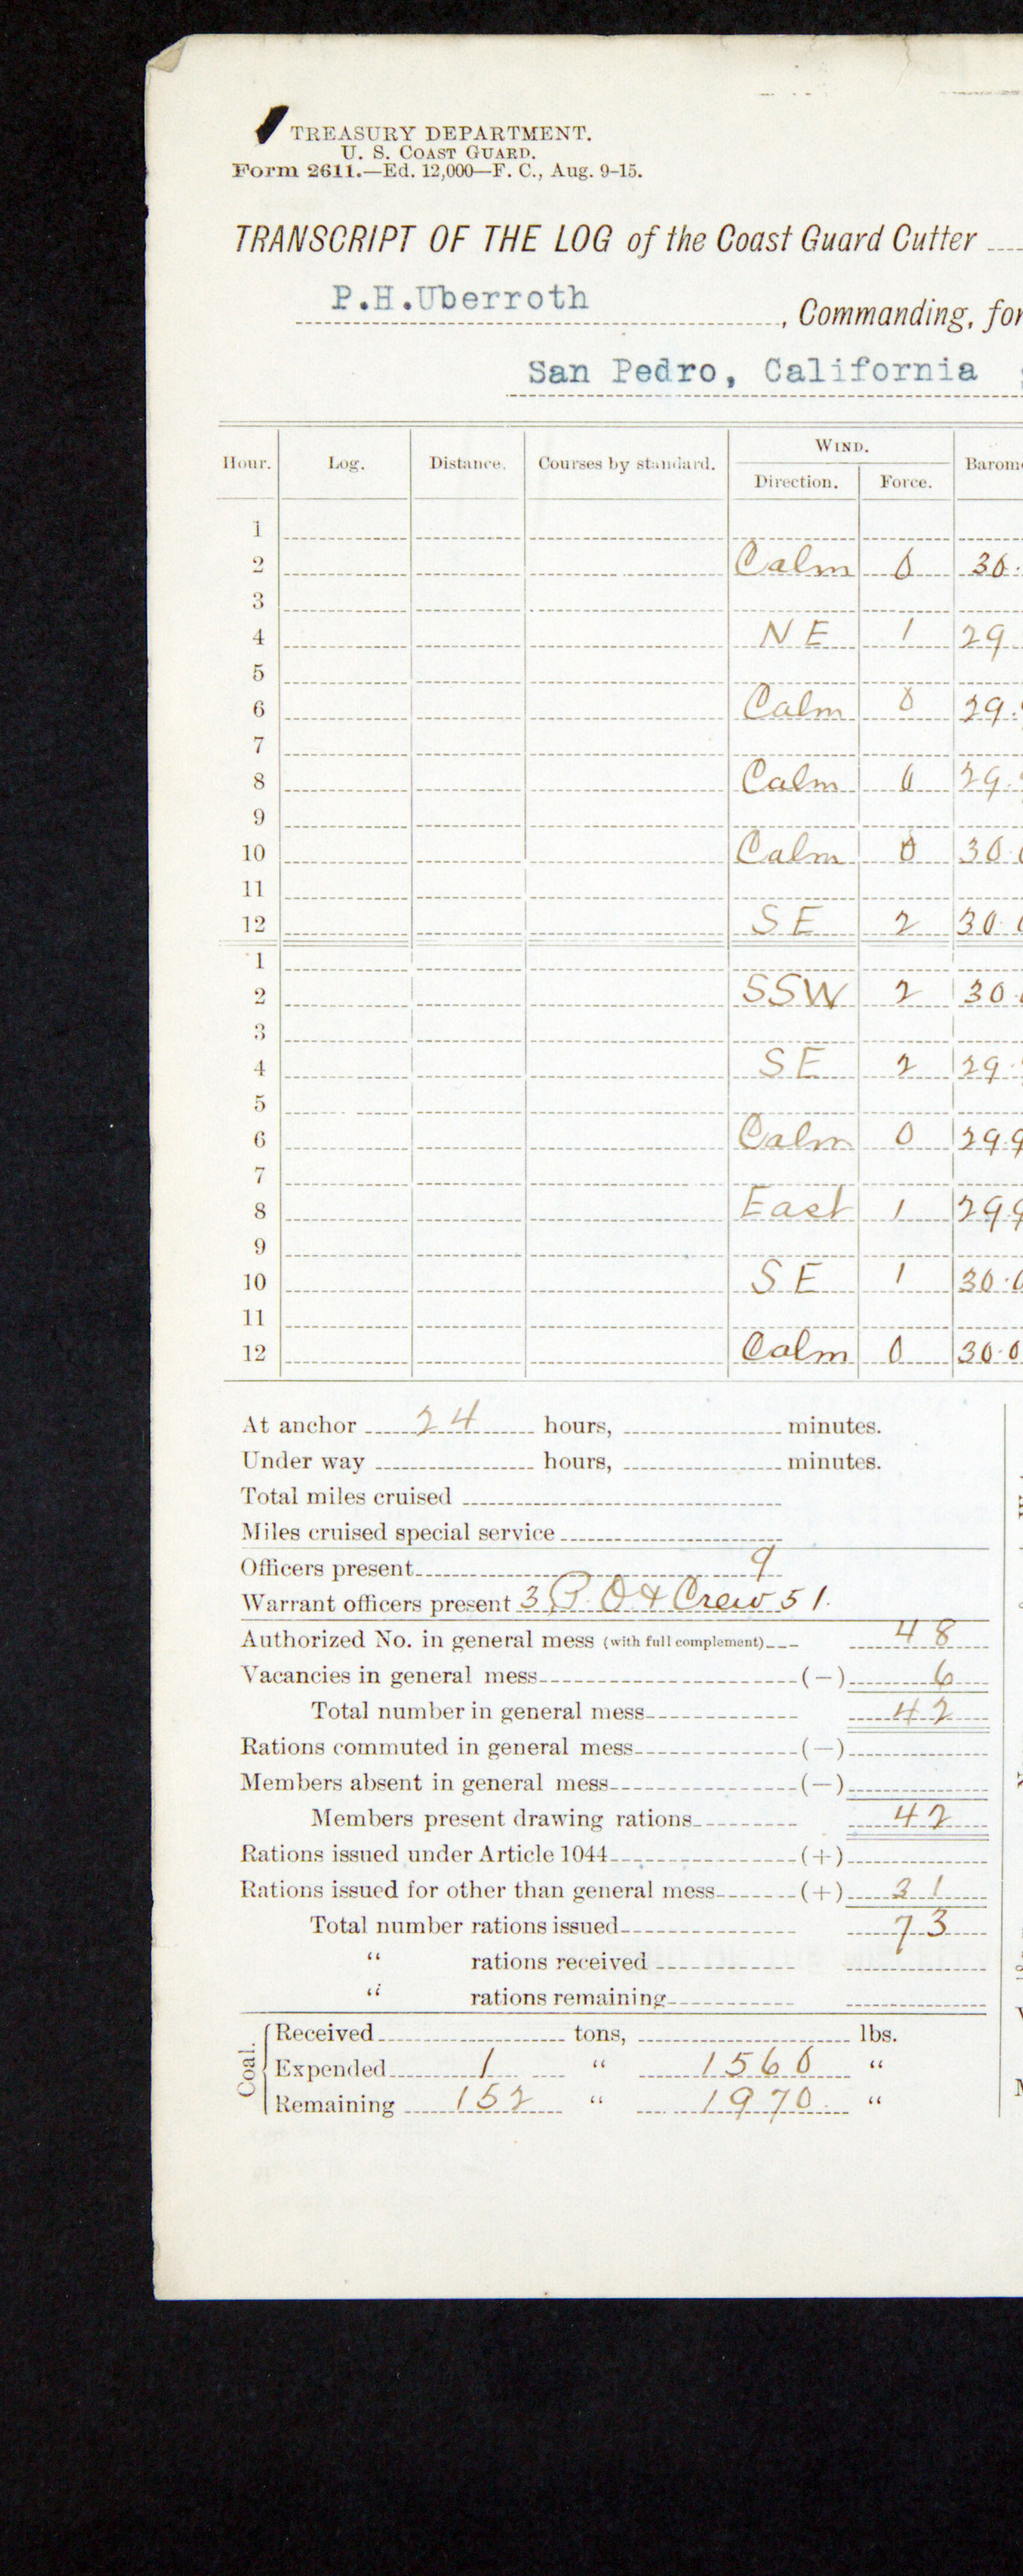 TREASURY DEPARTMENT.
U. S. COAST GUARD.
Form 2611.—Ed. 12,000—F. C., Aug. 9-15.
TRANSCRIPT OF THE LOG of the Coast Guard Cutter
P.H.Uberroth, Commanding, for
San Pedro, California
Hour. Log. Distance. Courses by standard. WIND. Direction. Force. Barom
1
2 Calm 0 30.
3
4 NE 1 29
5
6 Calm 0 29.
7
8 Calm 0 29.
9
10 Calm 0 30.0
11
12 SE 2 30.0
1
2 SSW 2 30.
3
4 SE 2 29.
5
6 Calm 0 29.9
7
8 East 1 29.9
9
10 SE 1 30.0
11
12 Calm 0 30.0
At anchor 24 hours, minutes.
Under way hours, minutes.
Total miles cruised
Miles cruised special service
Officers present 9
Warrant officers present 3 P.O & Crew 51.
Authorized No. in general mess (with full complement) 48
Vacancies in general mess (—) 6
Total number in general mess 42
Rations commuted in general mess (—)
Members absent in general mess (—)
Members present drawing rations 42
Rations issued under Article 1044 (+)
Rations issued for other than general mess (+) 31
Total number rations issued 73
“ rations received
“ rations remaining
Coal. Received tons, lbs.
Expended 1 “ 1560 “
Remaining 152 “ 1970 “